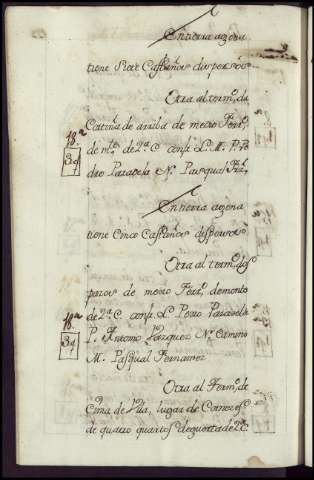 En tierra agena
tiene Siete Castaños dispersos
Otra al term.º da
Cortiña de arriba de medio Ferr.
de m.te de 2.ª C. conf. L. M. P. Pe
dro Paradela N. Pasqual Frz.
18.ª
39
En tierra agena
tiene Cinco Castaños dispersos
Otra al term.º dos
de medio Ferr. de monte
de 2.ª C. conf. L. Pedro Paradela
P. Antonio Vazquez N. Camino
M. Pasqual Fernandez
18.ª
39
Otra al Term.º de
Cima de Vila, lugar de
de quatro quartos de guerta de 2.ª C.